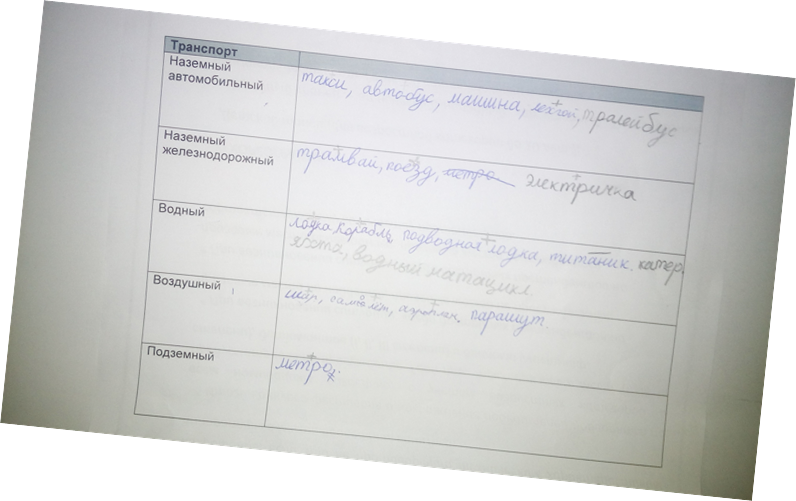 Транспорт
Наземный
автомобильный
такси, автобус, машина, тралейбус
Наземный
железнодорожный
трамвай, поезд, метро электричка
Водный
лодка корабль, подводная лодка, титаник. катер,
яхта, водный матацикл.
Воздушный
шар, самолёт, аэроплан, парашут.
Подземный
метро.